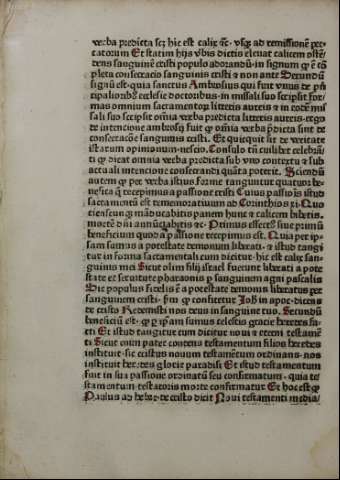 verba predicta scz hic est calix ꝛc̄ · vsqꝫ ad remissionē pec
catorum Et statim hijs vbis dictis eleuat calicem ostē/
dens sanguinē cristi populo adorandū·in signum ꝙ ē cō
pleta consecracio sanguinis cristi et non ante Secundū
signū est·quia sanctus Ambrosius qui fuit vnus de pn̄
cipalioribꝫ ecclesie doctoribus·in missali suo scripsit for
mas omnium sacramentoꝝ litteris aureis et in eodē mis
sali suo scripsit om̄ia verba predicta litteris aureis·ergo
de intencione ambrosij fuit ꝙ om̄ia verba p̄dicta sint de
consecracōne sanguinis cristi. Et quicquit sit de veritate
istarum opinionum·nescio. Consulo tn̄ cuilibet celebrā/
ti ꝙ dicat omnia verba predicta sub vno contextu et sub
actuali intencione consecrandi quāta poterit. Sciendū
autem ꝙ per verba istius forme tanguntur quatuor be/
neficia que recepimus a passione cristi Cuius passiōis istud
sacramentū est rememoratiuum ad Corinthios xi· Quo
cienscunqꝫ māducabitis panem hunc et calicem bibetis·
mortē dn̄i annūciabitis ꝛc· Primus effectꝰ siue primū
beneficium quod a passione recepimus est. Quia per ip/
sam sumus a potestate demonum liberati· et istud tangi
tur in forma sacramentali cum dicitur·hic est calix san/
guinis mei Sicut olim filij israel fuerunt liberati a pote
state et seruitute pharaonis per sanguinem agni pascalis
Sic populus fidelis ē a potestate demonis liberatus per
sanguinem cristi· ꝙ confitetur Joh̄ in apoc·dicens
de cristo Redemisti nos deus in sanguine tuo. Secundū
beneficiū est·ꝙ per ip̄am sumus celestis gracie heredes fa/
cti Et istud tangitur cum dicitur noui et eterni testamē
ti Sicut enim pater condens testamentum filios heredes
instituit·sic cristus nouum testamētum ordinans·nos
instituit heredes glorie paradisi Et istud testamentum
fuit in sua passione ordinatū seu confirmatum·quia te/
stamentum testatoris morte confirmatur Et hoc est ꝙ
Paulus ad hebre·de cristo dicit Noui testamenti media/